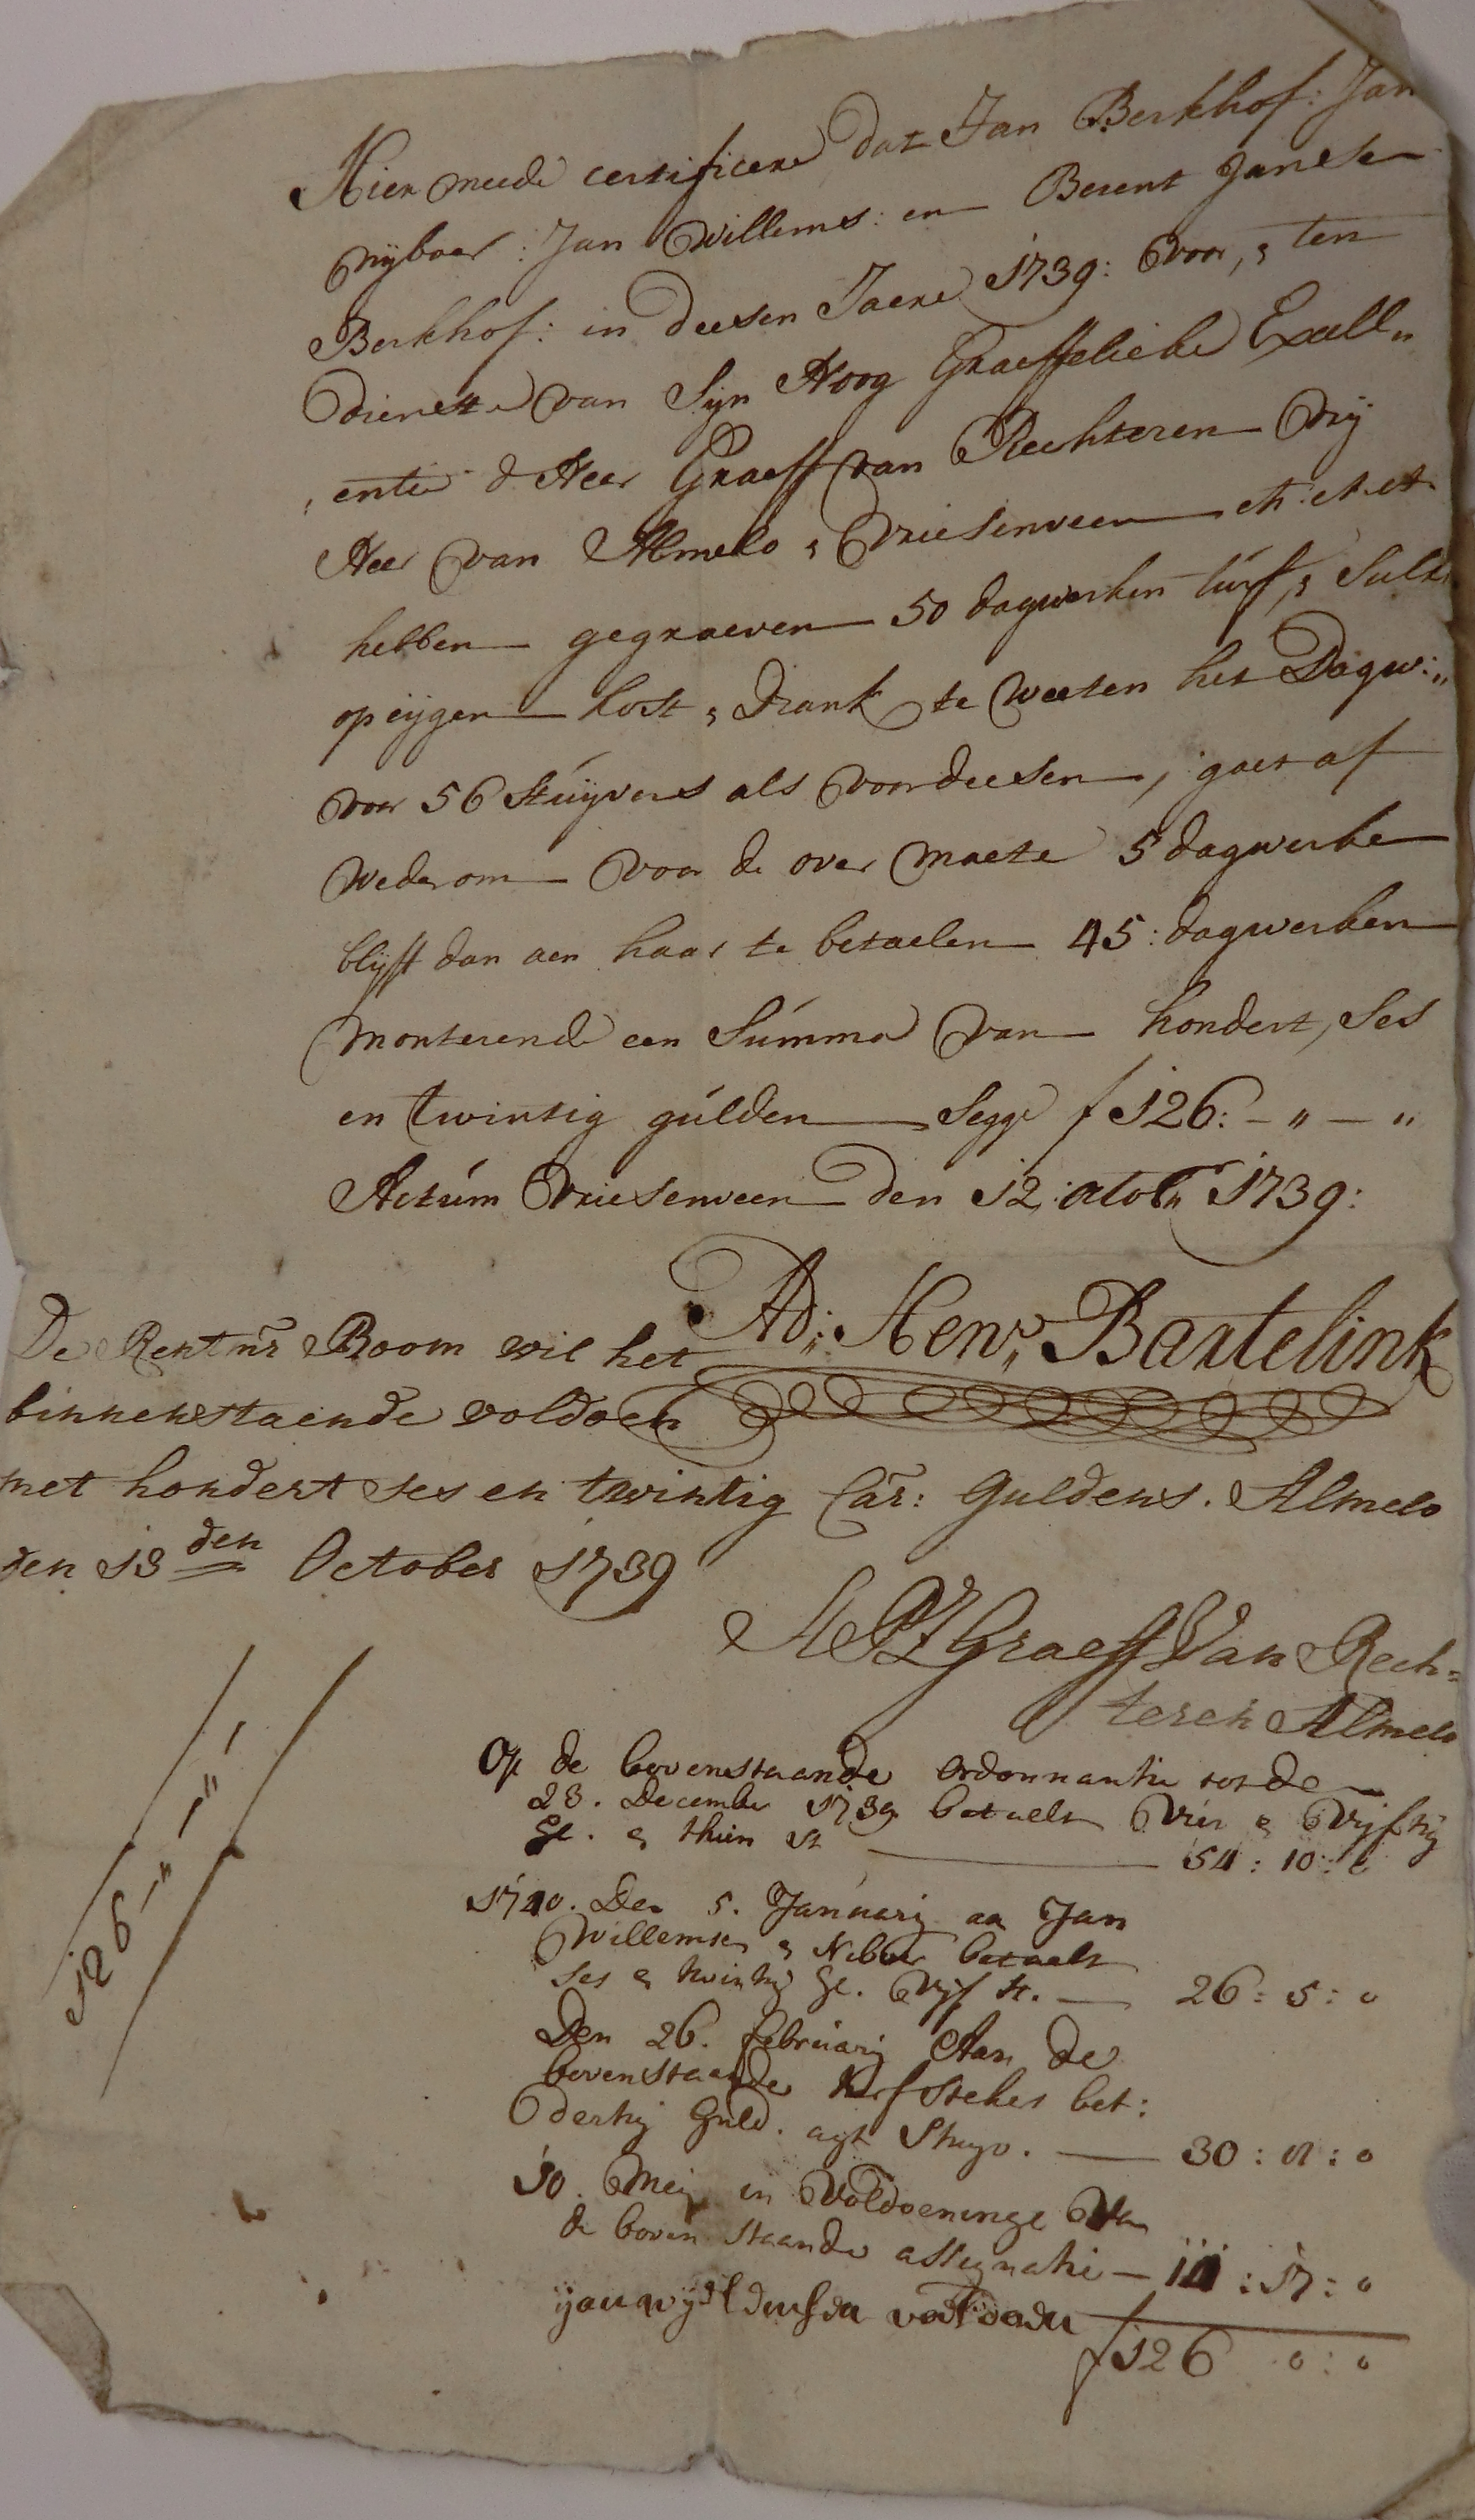 Hier meede certificere dat Jan Berkhof: Jan
Nijboer: Jan Willems: en Berent Jansen
Berkhof: in deesen Jaere 1739: voor, & ten
dienste van Sijn Hoog Graeffelicke Excell„
entie d Heer Graeff van Rechteren Vrij
Heer van Almelo & Vriesenveen etc: etc etc
hebben gegraeven 50 dagwerken turf, & Sulks
op eijgen kost & Drank te weeten het Dagw:„
voor 56 Stuijvers als voordeesen, gaet af
Wederom voor de over maete 5 dagwerke
blijft dan aen haar te betaelen 45: dagwerken
Monterende een Summa van hondert, Ses
en twintig gulden Segge f 126: - „ - „
Actum Vriesenveen den 12 octobr 1739:
Ad: Henr: Bartelink
De Rentmr Boom wil het
binnenstaende voldoen
met hondert ses en twintig Car: Guldens. Almelo
den 13den October 1739
Graeff Van Rech=
teren Almelo
126 - „ - „ -
Op de bovenstaande ordonnantie
23. December 1739 betaelt Vier & Vijftig
Gl. & thien st 54 : 10 : 0
1740. Den 5. Januarij aa Jan
Willemsen & Niboer betaelt
ses & twintig Gl. Vijf st. 26 : 5 : 0
Den 26. februarij Aan de
bovenstaende turfsteker bet:
dertig Guld. agt Stuyv. 30 : 8 : 0
10. Meij in Voldoeninge Van
de boven staande assignatie - 14 : 17 : 0
f 126 0 : 0